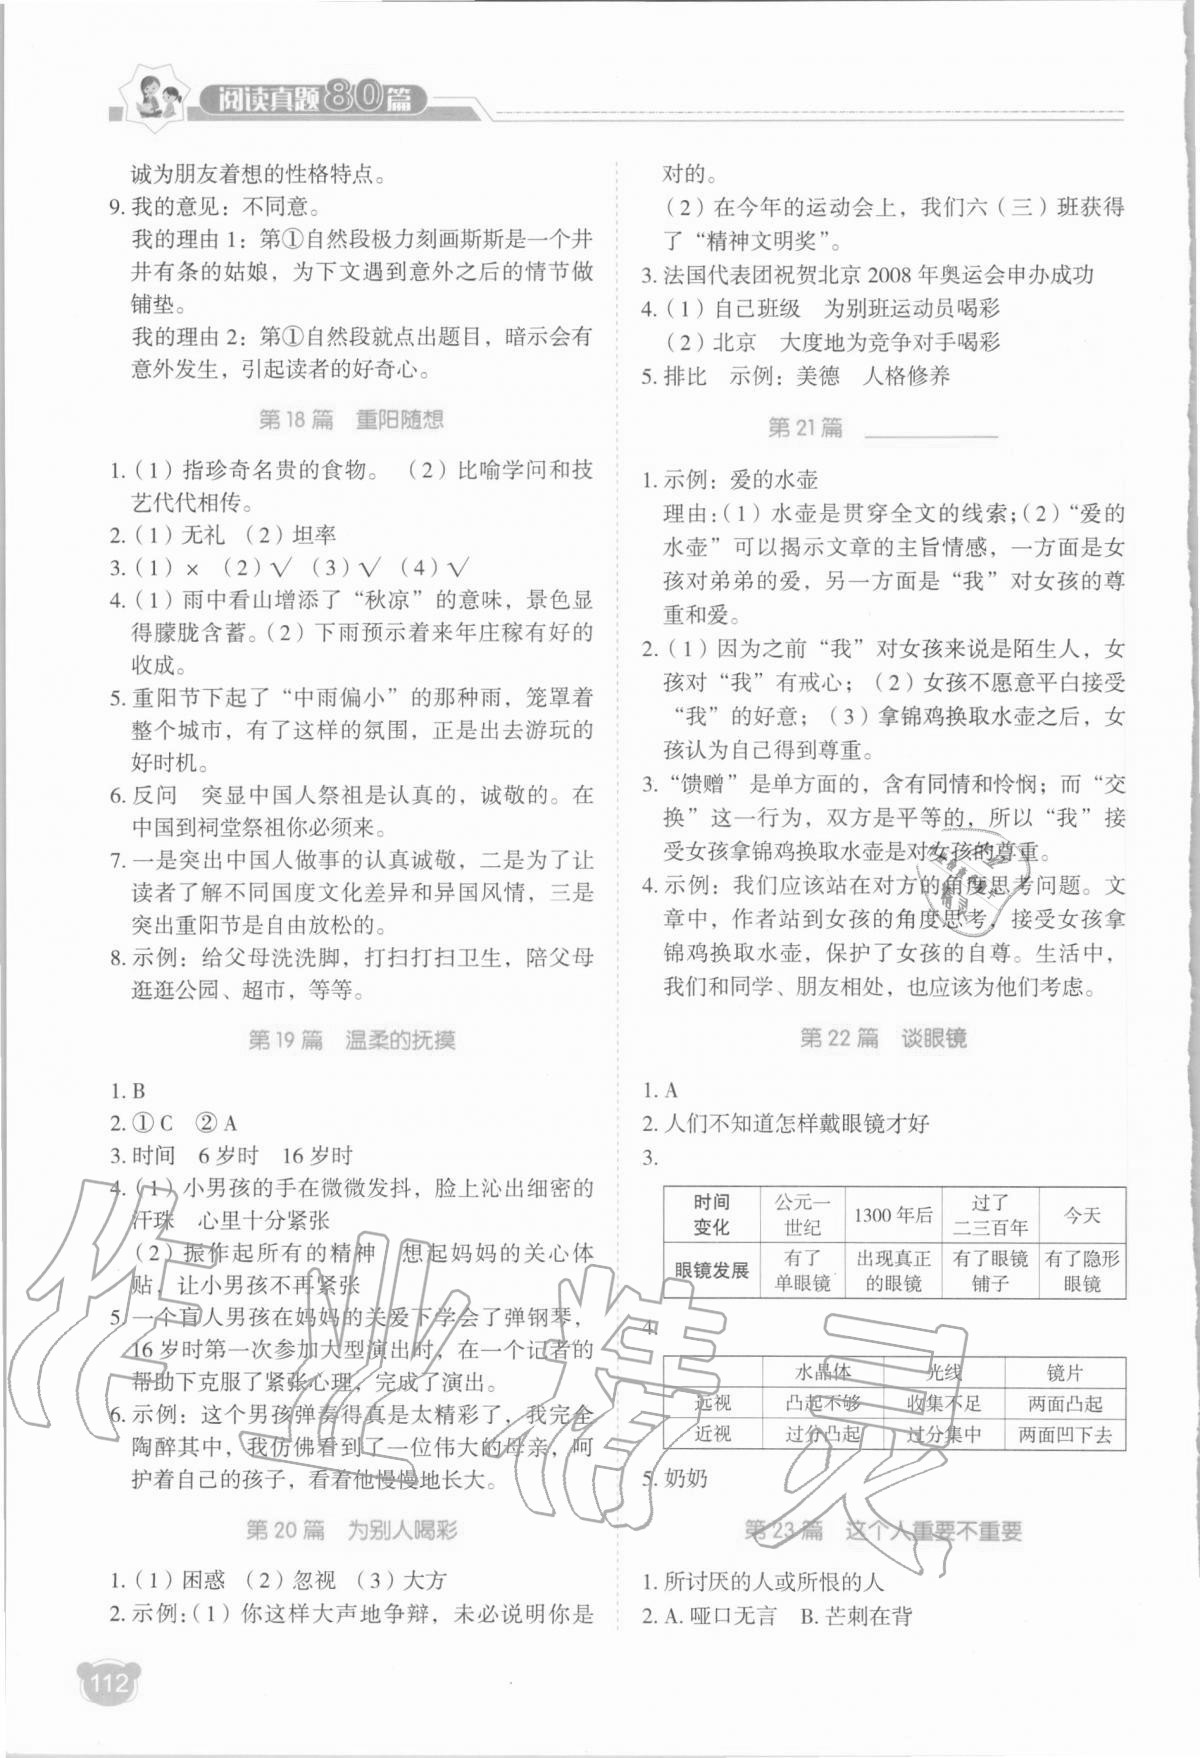 阅读真题80篇
诚为朋友着想的性格特点。
9. 我的意见：不同意。
我的理由 1：第①自然段极力刻画斯斯是一个井
井有条的姑娘，为下文遇到意外之后的情节做
铺垫。
我的理由 2：第①自然段就点出题目，暗示会有
意外发生，引起读者的好奇心。
第 18 篇　重阳随想
1.（1）指珍奇名贵的食物。（2）比喻学问和技
艺代代相传。
2.（1）无礼 （2）坦率
3.（1）× （2）√ （3）√ （4）√
4.（1）雨中看山增添了“秋凉”的意味，景色显
得朦胧含蓄。（2）下雨预示着来年庄稼有好的
收成。
5. 重阳节下起了“中雨偏小”的那种雨，笼罩着
整个城市，有了这样的氛围，正是出去游玩的
好时机。
6. 反问　突显中国人祭祖是认真的，诚敬的。在
中国到祠堂祭祖你必须来。
7. 一是突出中国人做事的认真诚敬，二是为了让
读者了解不同国度文化差异和异国风情，三是
突出重阳节是自由放松的。
8. 示例：给父母洗洗脚，打扫打扫卫生，陪父母
逛逛公园、超市，等等。
第 19 篇　温柔的抚摸
1. B
2. ①C　②A
3. 时间　6 岁时　16 岁时
4.（1）小男孩的手在微微发抖，脸上沁出细密的
汗珠　心里十分紧张
（2）振作起所有的精神　想起妈妈的关心体
贴，让小男孩不再紧张
5. 一个盲人男孩在妈妈的关爱下学会了弹钢琴，
16 岁时第一次参加大型演出时，在一个记者的
帮助下克服了紧张心理，完成了演出。
6. 示例：这个男孩弹奏得真是太精彩了，我完全
陶醉其中，我仿佛看到了一位伟大的母亲，呵
护着自己的孩子，看着他慢慢地长大。
第 20 篇　为别人喝彩
1.（1）困惑 （2）忽视 （3）大方
2. 示例：（1）你这样大声地争辩，未必说明你是
112
对的。
（2）在今年的运动会上，我们六（三）班获得
了“精神文明奖”。
3. 法国代表团祝贺北京 2008 年奥运会申办成功
4.（1）自己班级　为别班运动员喝彩
（2）北京　大度地为竞争对手喝彩
5. 排比　示例：美德　人格修养
第 21 篇 ________
1. 示例：爱的水壶
理由：（1）水壶是贯穿全文的线索；（2）“爱的
水壶”可以揭示文章的主旨情感，一方面是女
孩对弟弟的爱，另一方面是“我”对女孩的尊
重和爱。
2.（1）因为之前“我”对女孩来说是陌生人，女
孩对“我”有戒心；（2）女孩不愿意平白接受
“我”的好意；（3）拿锦鸡换取水壶之后，女
孩认为自己得到尊重。
3.“馈赠”是单方面的，含有同情和怜悯；而“交
换”这一行为，双方是平等的，所以“我”接
受女孩拿锦鸡换取水壶是对女孩的尊重。
4. 示例：我们应该站在对方的角度思考问题。文
章中，作者站到女孩的角度思考，接受女孩拿
锦鸡换取水壶，保护了女孩的自尊。生活中，
我们和同学、朋友相处，也应该为他们考虑。
第 22 篇　谈眼镜
1. A
2. 人们不知道怎样戴眼镜才好
3.
时间变化　公元一世纪　1300 年后　过了二三百年　今天
眼镜发展　有了单眼镜　出现真正的眼镜　有了眼镜铺子　有了隐形眼镜
4.
水晶体　光线　镜片
远视　凸起不够　收集不足　两面凸起
近视　过分凸起　过分集中　两面凹下去
5. 奶奶
第 23 篇　这个人重要不重要
1. 所讨厌的人或所恨的人
2. A. 哑口无言　B. 芒刺在背
作业精灵